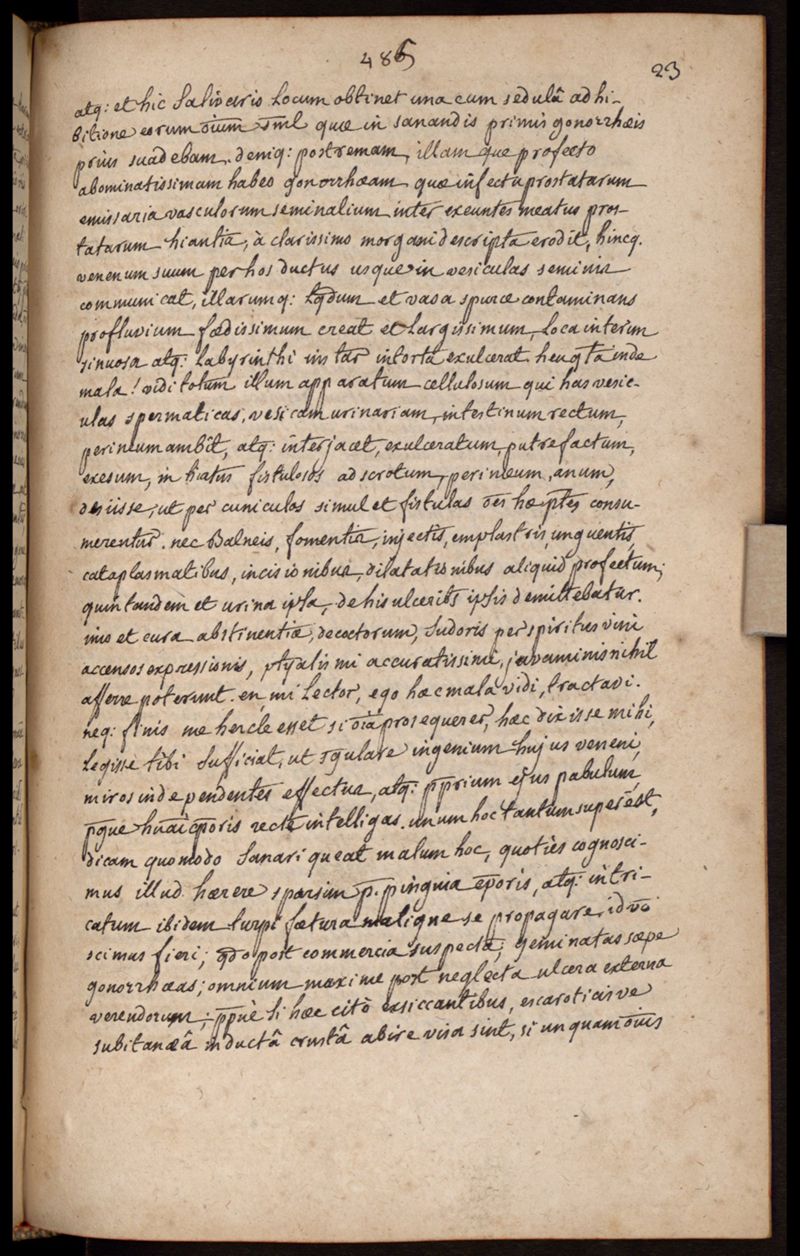 485
23
atq: et hic Salivaris Locum obtinet una cum sedulâ adhi-
bitione eorum oīum sml quæ in sanandis primis gonorrhæis
prius suadebam. deniq: postremam, illamque profecto
abominatissimam habeo gonorrhæam quæ infectu prostatarum
emissaria vasculorum seminalium inter exeuntes meatus pros-
tatarum hiantia, à clarissimo morgani descripta erodit, hincq.
venenum suum per hos ductus usque in vesiculas seminis
communicat, illarumq: Lqdum et vasa spurce contaminans
profluvium fœdissimum creat et Largissimum, Loca interim
sinuosa atq: Labyrinthi instar intorta exulcerat. heu qta inde
mala! vidi totum illum apparatum cellulosum qui has vesic-
ulas spermaticas, vesicam urinariam, intestinum rectum,
perineum ambit, atq: interjacet, exulceratum, putrefactum,
exesum, in hiatus fistulosos ad scrotum, perineum, anum,
desiisse, ut per cuniculos simul et fistulas oēs hæ ptes consu-
merentur. nec Balneis, fomentis, injectis, emplastris, unguentis,
cataplasmatibus, incisionibus, dilatationibus aliquid profectum,
quin tandem et urina ipsa, de his ulceribs ipsis demittebatur.
imo et cura abstinentiæ, decoctorum, Sudoris per spiritus vini
accensos expressionis, ptyalismi accuratissimi, juvaminis nihil
afferre poterunt. en, mi Lector, ego hæc mala vidi, tractavi.
neq: finis me hercle esset si oīa prosequerer, hæc dixisse mihi,
Legisse tibi Sufficiat, ut sgulare ingenium hujus veneni,
miros inde pendentes effectus, atq: pprium ejus pabulum,
pque huāi cporis recte intelligas. unum hoc tantum superest,
dicam quomodo Sanari queat malum hoc, quoties cognosci-
mus illud hærere sparsim p. pinguia cporis, atq: intri-
catum ibidem turpi fœtura maligne se propagare. id vō
scimus fieri, qdo post commercia suspecta, geminatas sæpe
gonorrhæas; omnium maxime post neglecta ulcera externa
verendorum; ppuè si hæc citò exsiccantibus, escaroticisve
subitaneâ inductâ crustâ abire visa sint, si unquam oīuis